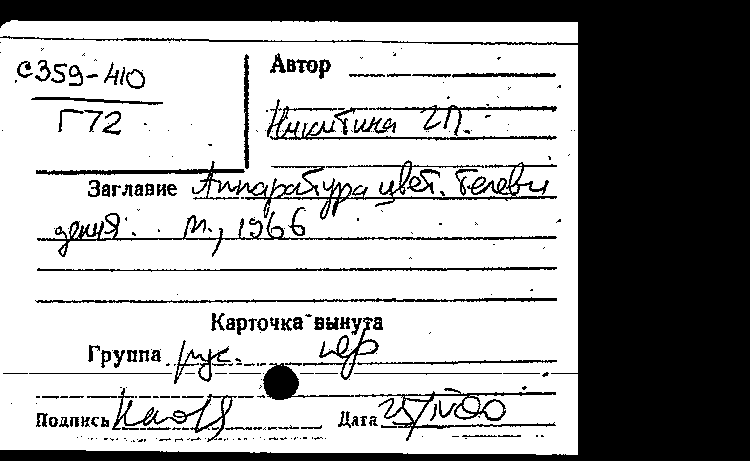 с359-410
Г72
Автор
Никитина
Заглавие Аппаратура цвет. телеви
дения. М., 1966
Карточка вынута
Группа рус. иер
Подпись
Дата 25/IV